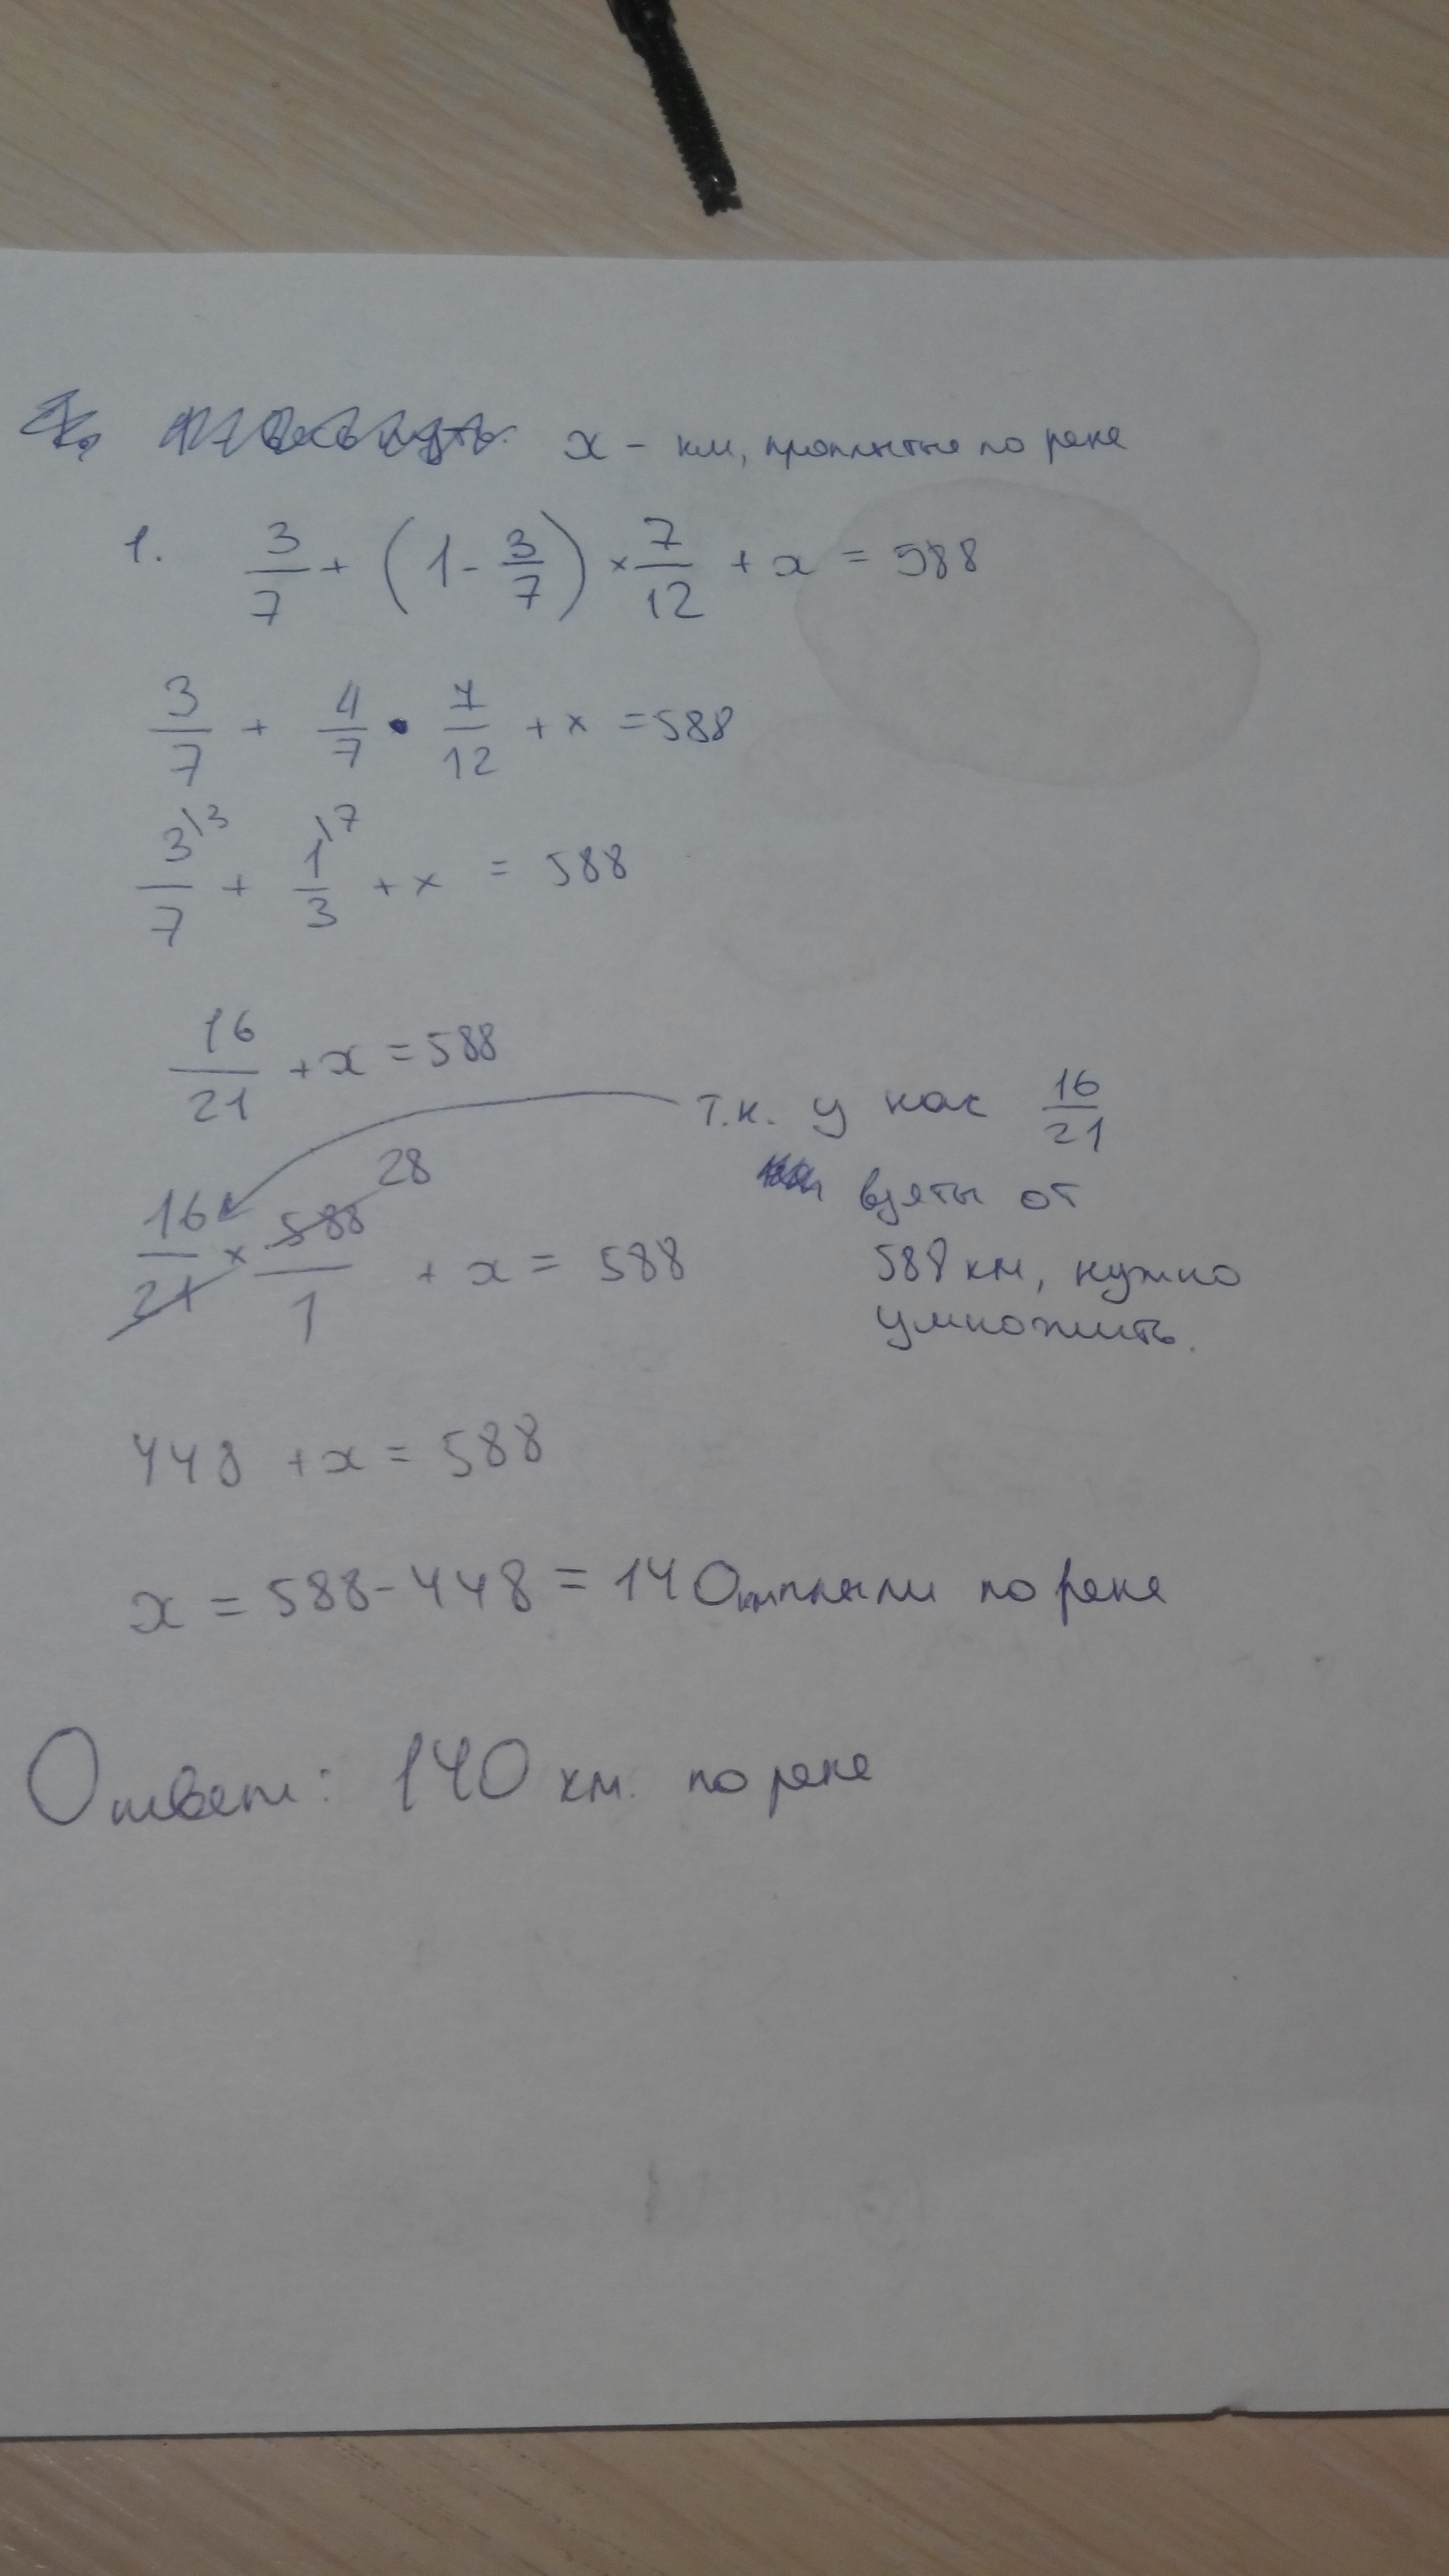 x - км, проплытые по реке
1. 3/7 + (1 - 3/7) × 7/12 + x = 588
3/7 + 4/7 • 7/12 + x = 588
3\3/7 + 1\7/3 + x = 588
16/21 + x = 588
т.к. у нас 16/21
взяты от
588 км, нужно
умножить.
28
16/21 × 588/1 + x = 588
448 + x = 588
x = 588 - 448 = 140 км плыли по реке
Ответ: 140 км. по реке